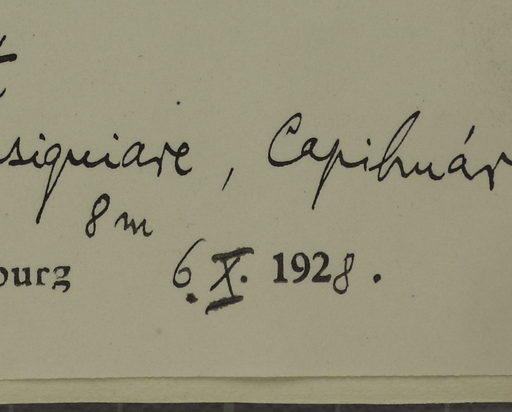 siquiare, Capihuár
8 m
ourg 6.X. 1928.